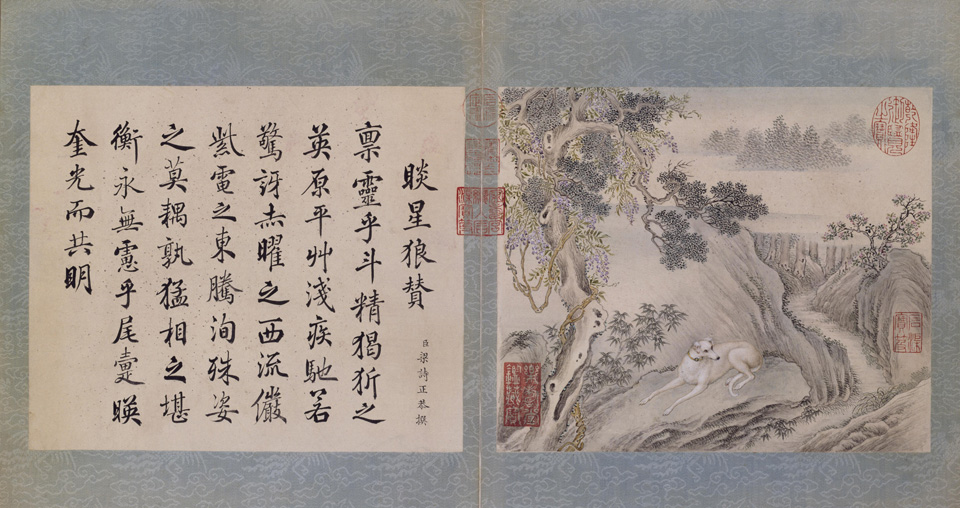 睒星狼贊
臣梁詩正恭撰
稟靈乎斗精猲㹞之
英原平艸淺疾馳若
驚訝赤曜之西流儼
紫電之東騰洵殊姿
之莫耦孰猛相之堪
衡永無慮乎尾疐暎
奎光而共明
乾隆御覽之寶